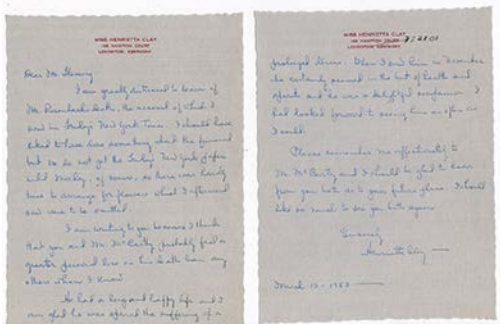 MISS HENRIETTA CLAY
HAMPTON COURT
LEXINGTON, KENTUCKY
Dear Mr. Fleming
I am greatly distressed to learn of
Mr. Rosenbach's death, the account of which I
saw in Friday's New York Times. I should have
liked to have done something about the funeral
but we do not get the Friday New York papers
until Monday, of course, so there was hardly
time to arrange for flowers which I afterward
saw were to be omitted.
I am writing to you because I think
that you and Mr. McCarty probably feel a
greater personal loss in his death than any
others whom I know.
He had a long and happy life and I
am glad he was spared the suffering of a
MISS HENRIETTA CLAY
HAMPTON COURT
LEXINGTON, KENTUCKY
prolonged illness. When I saw him in December
he certainly seemed in the best of health and
spirits and he was a delightful companion. I
had looked forward to seeing him as often as
I could.
Please remember me affectionately to
Mr. McCarty and I should be glad to hear
from you both as to your future plans. I should
like so much to see you both again.
Sincerely
Henrietta Clay
March 12 - 1953